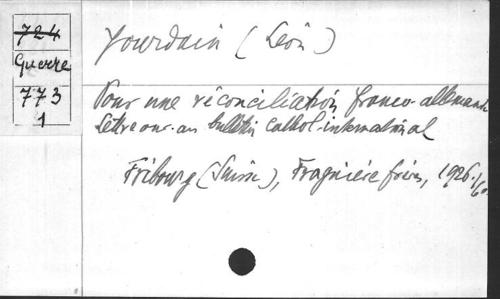 724
Guerre
773
1
Jourdain (Léon)
Pour une réconciliation franco-allemande
Lettre ouv. au bulletin cathol. international
Fribourg (Suisse), Fragnière frères, 1926.